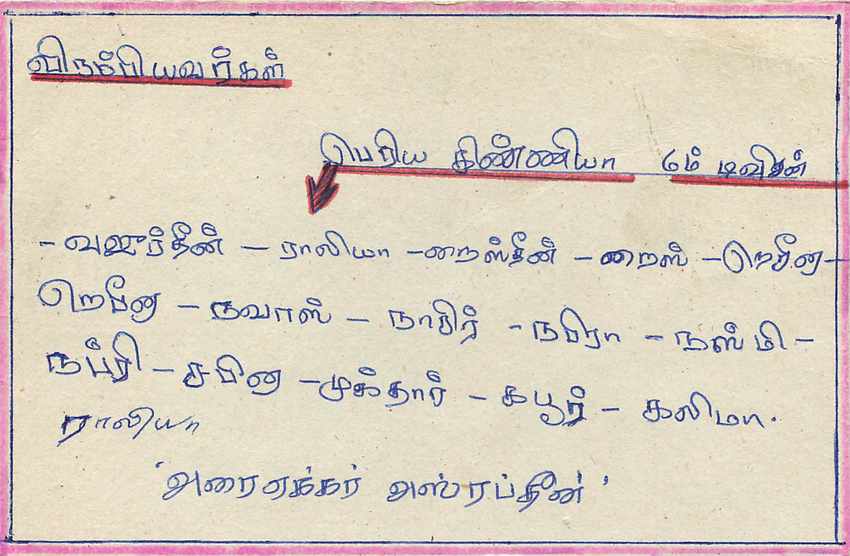 விரும்பியவர்கள்
பெரிய கிண்ணியா 6ம் டிவிசன்
- வஜுர்தீன் - ராலியா - றைஸ்தீன் - றைஸ் - றெபீன -
றெபீன - நவாஸ் - நாதிர் - நபிரா - நஸ்மி -
நப்ரி - சபின - முக்தார் - கபூர் - கலிமா.
ராலியா
'அரைஏக்கர் அஸ்ரப்தீன்'